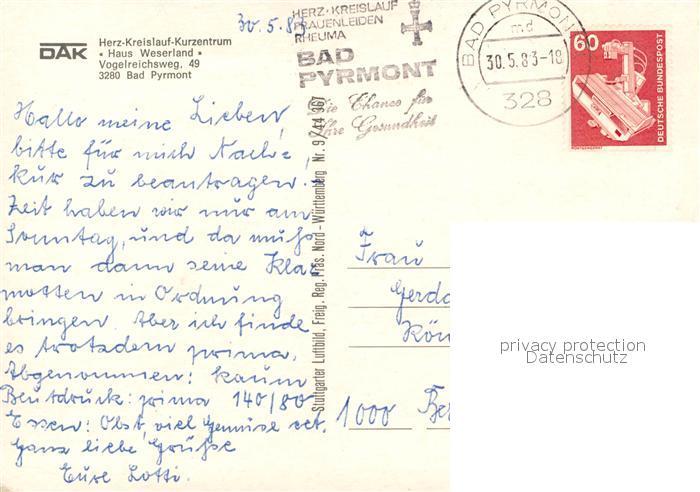 30.5.83
DAK
Herz-Kreislauf-Kurzentrum
• Haus Weserland •
Vogelreichsweg, 49
3280 Bad Pyrmont
HERZ-KREISLAUF
FRAUENLEIDEN
RHEUMA
BAD
PYRMONT
Die Chance für
Ihre Gesundheit
BAD PYRMONT
md
30.5.83-18
328
60
DEUTSCHE BUNDESPOST
RÖNTGENGERÄT
Hallo meine Lieben,
bitte für mich Nach=
kur zu beantragen.
Zeit haben wir nur am
Sonntag, und da muß
man dann seine Kla=
motten in Ordnung
bringen. Aber ich finde
es trotzdem prima.
Abgenommen: kaum
Blutdruck: prima 140/80
Essen: Obst, viel Gemüse etc.
Ganz liebe Grüße
Eure Lotti.
Stuttgarter Luftbild, Freig. Reg. Präs. Nord-Württemberg Nr. 9/44 367
Frau
Gerda
Kön
1000 Be
privacy protection
Datenschutz